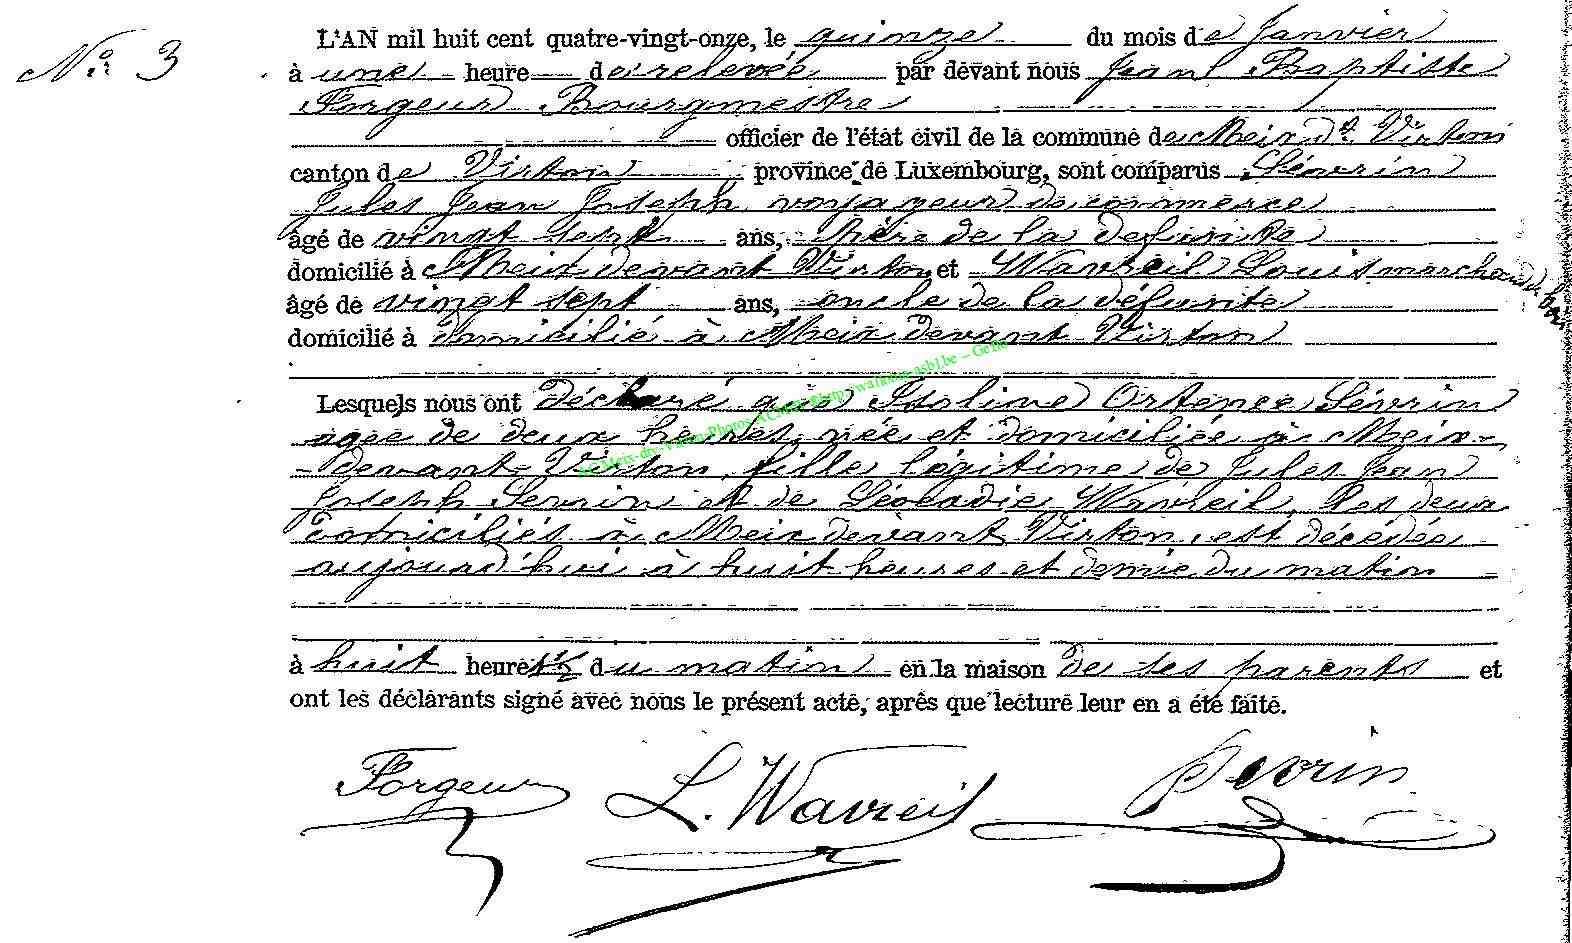 No 3
L'AN mil huit cent quatre-vingt-onze, le quinze du mois de Janvier
à une heure de relevée par devant nous Jean Baptiste
Forgeur Bourgmestre
officier de l'état civil de la commune de Meix dt Virton
canton de Virton province de Luxembourg, sont comparus Sévrin
Jules Jean Joseph, voyageur de commerce
âgé de vingt sept ans, Père de la défunte
domicilié à Meix devant Virton et Wavreil Louis marchand de
âgé de vingt sept ans, oncle de la défunte
domicilié à domicilié à Meix devant Virton
Lesquels nous ont déclaré que Isoline Ortence Sévrin
agée de deux heures, née et domiciliée à Meix-
-devant-Virton, fille légitime de Jules Jean
Joseph Sevrin et de Léocadie Wavreil, les deux
domiciliés à Meix devant Virton, est décédée
aujourd'hui à huit heures et demie du matin
à huit heures 1/2 du matin en la maison de ses parents et
ont les déclarants signé avec nous le présent acte, après que lecture leur en a été faite.
Forgeur L. Wavreil Sevrin